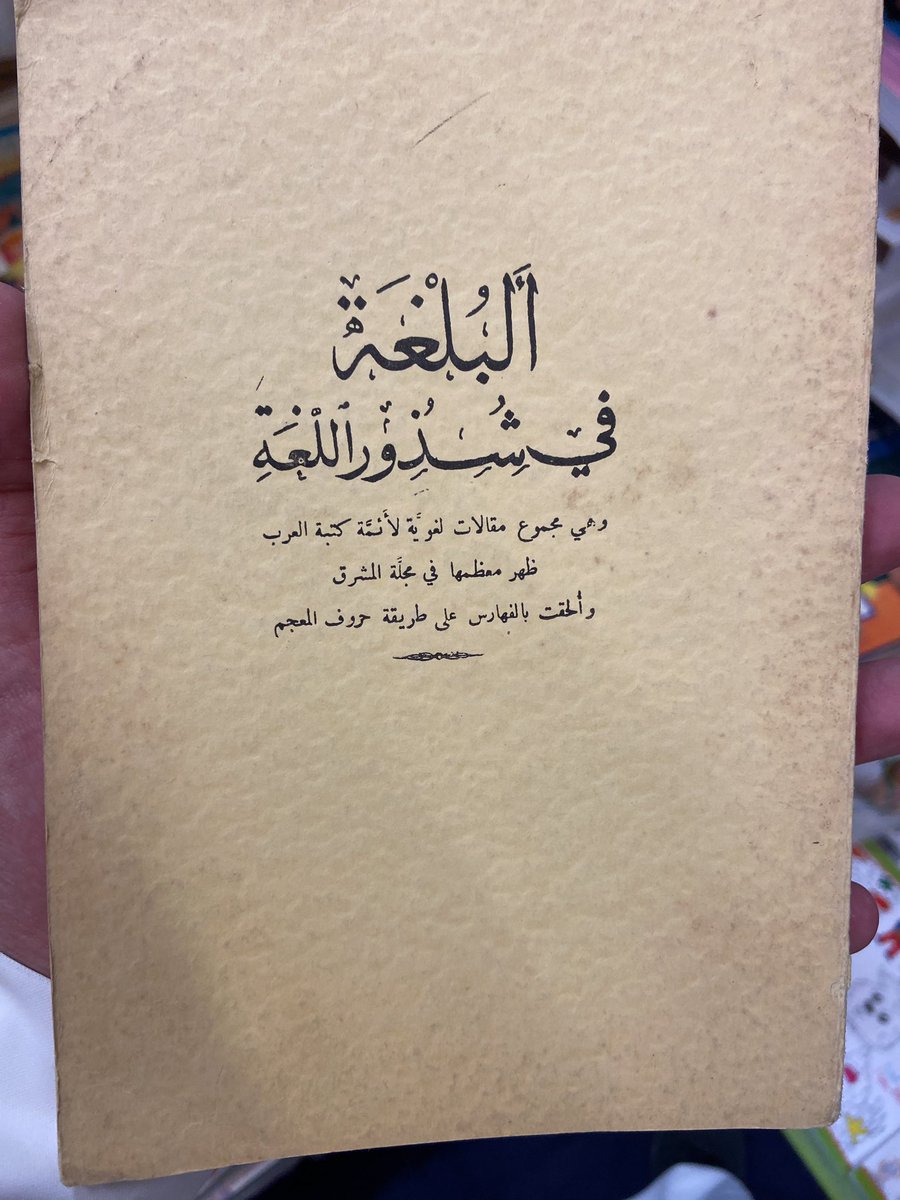 أَلبُلْغَة
في شُذُور اللُغَةِ
وهي مجموع مقالات لغويَّة لأَئمَّة كتبة العرب
ظهر معظمها في مجلَّة المشرق
وأُلحقت بالفهارس على طريقة حروف المعجم